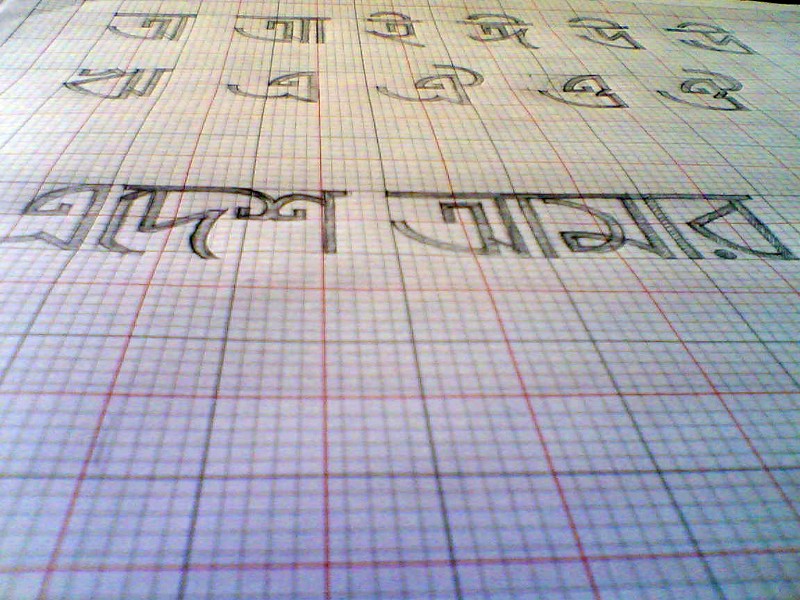 অ আ ই ঈ উ ঊ
ঋ এ ঐ ও ঔ
এদেশ আমার